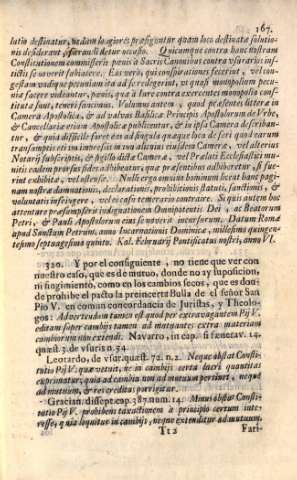 167.
lutio destinatur, nedum longiores præfigantur quàm loco destinatæ solutio-
nis desiderant, furandi detur occasio. Quicumque contra hanc nostram
Constitutionem commisserit pœnis à Sacris Canonibus contra vsurarios in-
flictis se noverit subiacere. Eas verò, qui conspirationes fecerint, vel con-
gestam vndique pecuniam ita ad se redegerint, vt quasi monopolium pecu-
niæ facere videantur, pœnis, quæ à Iure contra exercentes monopolia consti-
tutæ sunt, teneri sancimus. Volumus autem, quod præsentes litteræ in
Camera Apostolica, & ad valvas Basilicæ Principis Apostolorum de Vrbe,
& Cancellariæ etiam Apostolicæ publicentur, & in ipsa Camera describan-
tur, & quod difficile foret eas ad singula quæque loca deferri quod earum
transumptis etiam impressis manu alicuius eiusdem Cameræ, vel alterius
Notarij subscriptis, & sigillo dictæ Cameræ, vel Prælati Ecclesiastici mu-
nitis eadem prorsus fides adhibeatur, quæ præsentibus adhiberetur, si fue-
rint exhibitæ, vel ostensæ. Nulli ergo omnino hominum liceat hanc pagi-
nam nostræ damnationis, declarationis, prohibitionis statuti, sanctionis, &
voluntatis infringere, vel ei ausu temerario contraire. Si quis autem hoc
attentare præsumpserit indignationem Omnipotentis Dei, ac Beatorum
Petri, & Pauli Apostolorum eius se noverit incursurum. Datum Romæ
apud Sanctum Petrum, anno Incarnationis Dominicæ, millesimo quingen-
tesimo septuagesimo quinto. Kal. Februarij Pontificatus nostri, anno VI.
320. Y por el consiguiente, no tiene que ver con
nuestro caso, que es de mutuo, donde no ay suposicion,
ni fingimiento, como en los cambios secos, que es donde
prohibe el pacto la preincerta Bulla de el señor San
Pio V. en comun concordancia de Juristas, y Theolo-
gos: Advertendum tamen est quod per extravagantem Pij V.
editam super cambijs tamen ad mutuantes extra materiam
cambiorum non extendi. Navarro, in cap. si fœnerav. 14.
quæst. 3. de vsuris n. 54.
Leotardo, de vsur. quæst. 72. n. 2. Neque obstat Consti-
tutio Pij V. quæ vetuit, ne in cambijs certa lucri quantitas
exprimatur, quia ad cambia non ad mutuum pertinet, neque
ad mutuum, & res creditas porrigitur.
Gracian. discept. cap. 387. num. 14. Minus obstat Consti-
tutio Pij V. prohibens taxationem à principio certum inte-
resse, quia loquitur in cambijs, neque extenditur ad mutuum.
Tt2
Fari-